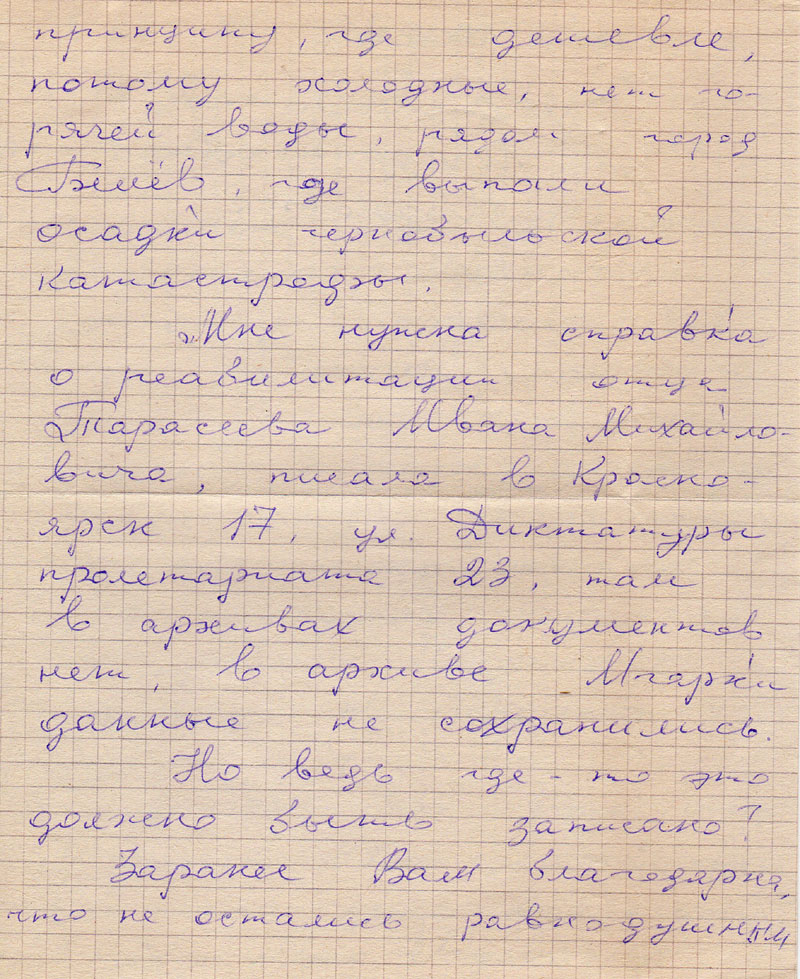 принципу, где дешевле,
потому холодные, нет го-
рячей воды, рядом город
Белёв, где выпали
осадки чернобыльской
катастрофы.
Мне нужна справка
о реабилитации отца
Тарасеева Ивана Михайло-
вича, писала в Красно-
ярск 17, ул. Диктатуры
пролетариата 23, там
в архивах документов
нет, в архиве Игарки
данные не сохранились.
Но ведь где-то это
должно быть записано?
Заранее Вам благодарна,
что не остались равнодушным